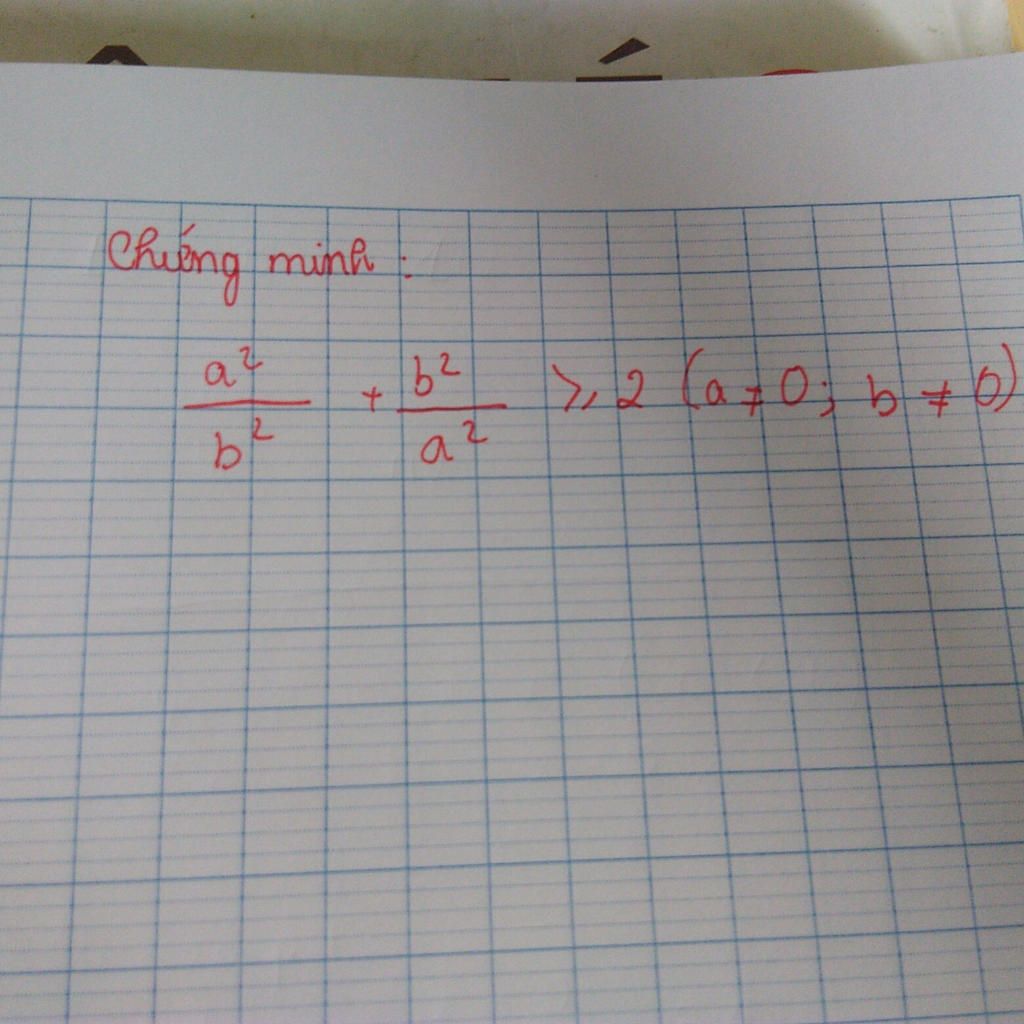 Chứng minh :
a²/b² + b²/a² ⩾ 2 (a ≠ 0; b ≠ 0)